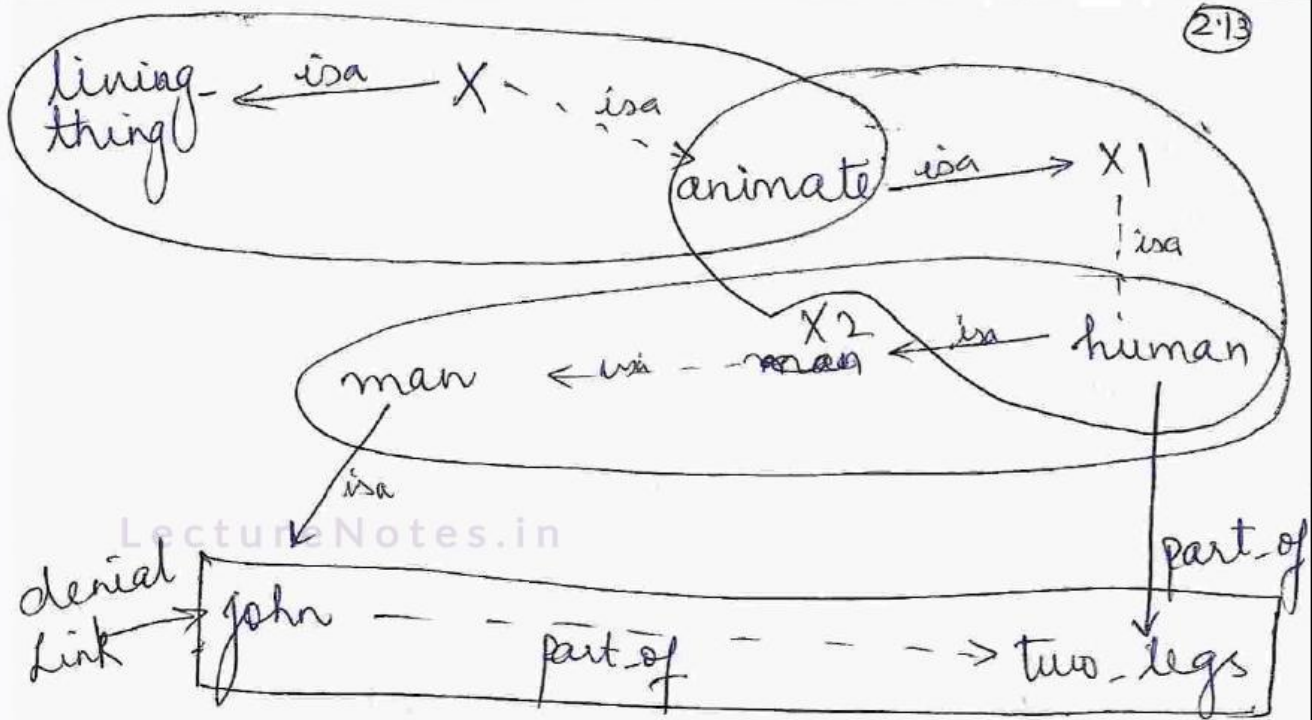 2.13
lining-
thing
isa
X
isa
animate
isa
X1
isa
X2
man
isa
human
isa
part_of
LectureNotes.in
denial
Link
john
part_of
two_legs